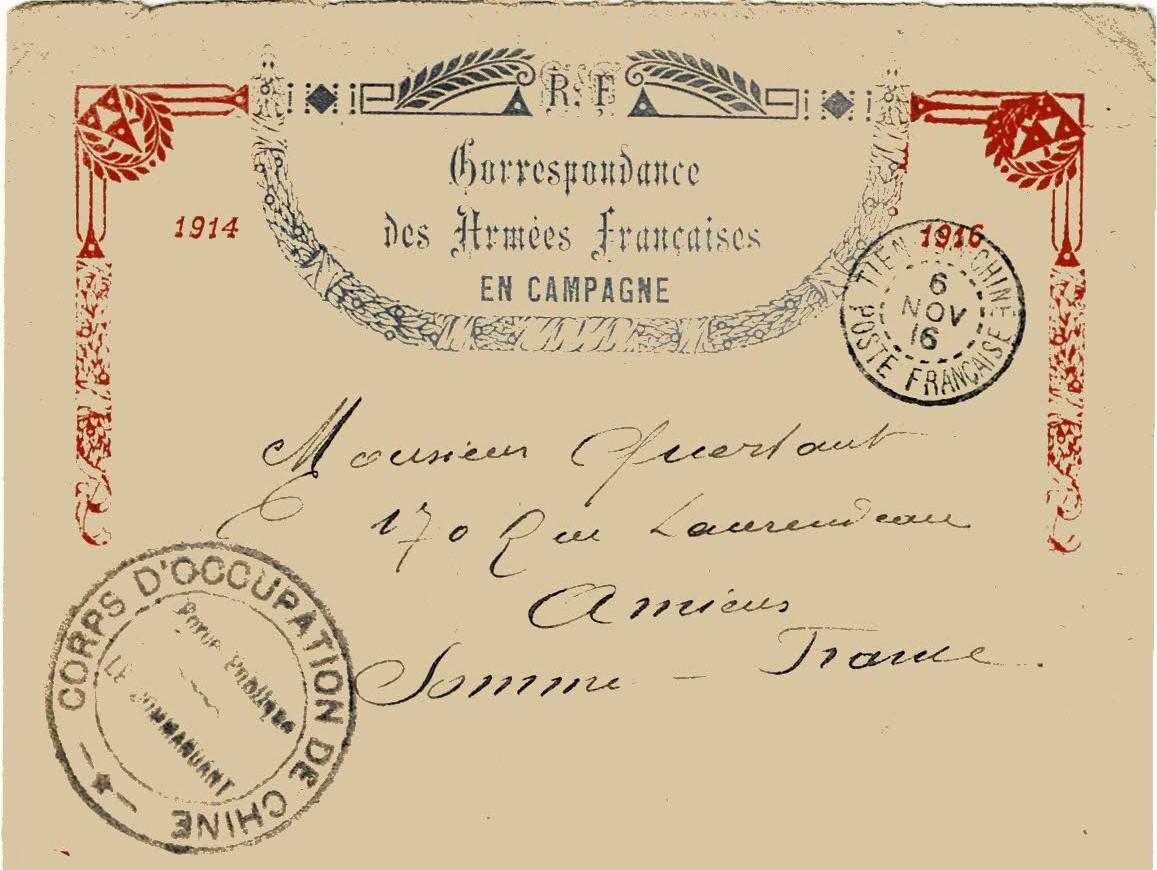 R.F
Correspondance
des Armées Françaises
EN CAMPAGNE
1914
1916
TIEN TSIN-CHINE
6
NOV
16
POSTE FRANÇAISE
Monsieur Quertant
170 Rue Laurendeau
Amiens
Somme - France.
CORPS D'OCCUPATION DE CHINE
Force Publique
LE COMMANDANT